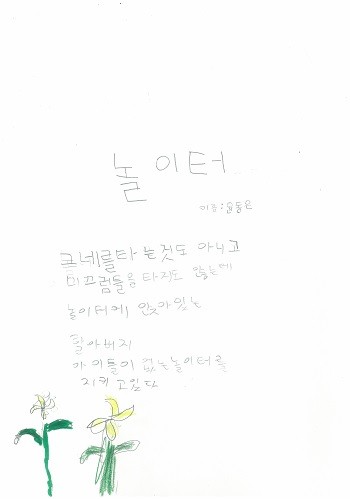 놀이터
이름:윤동원
그네를타는것도 아니고
미끄럼틀을 타지도 않는데
놀이터에 앉자있는
할아버지
아이들이 없는놀이터를
지키고있다